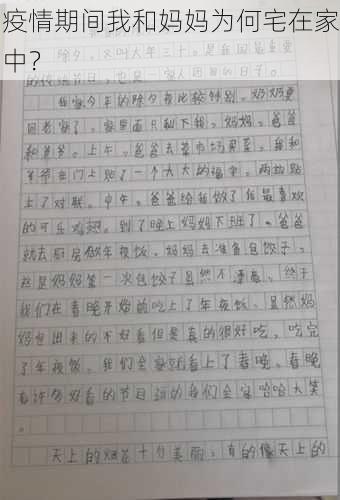 疫情期间我和妈妈为何宅在家
中？
除夕，又叫大年三十。是我国最重要
的传统节日，也是一家人
我家今年的除夕夜比较特别。奶奶更
回老家了，家里面只剩下我、妈妈、爸爸
和爷爷。上午，爸爸去菜市场买菜，我和
爷爷在门上贴了一个大大的福字，两边贴
上了对联。中午，爸爸给我做了我最喜欢
的可乐鸡翅。到了晚上妈妈下班了。爸爸
就去厨房做年夜饭，妈妈去准备包饺子，
这是妈妈第一次包饺子虽然不漂亮，终于
我们在春晚开始前吃上了年夜饭、虽然妈
妈包出来的不好看但是真的很好吃，吃完
了年夜饭，我们全家就看上了春晚。春晚
有许多好看的节目逗的我们全家哈哈大笑
。
天上的烟花十分美丽，有的像天上的